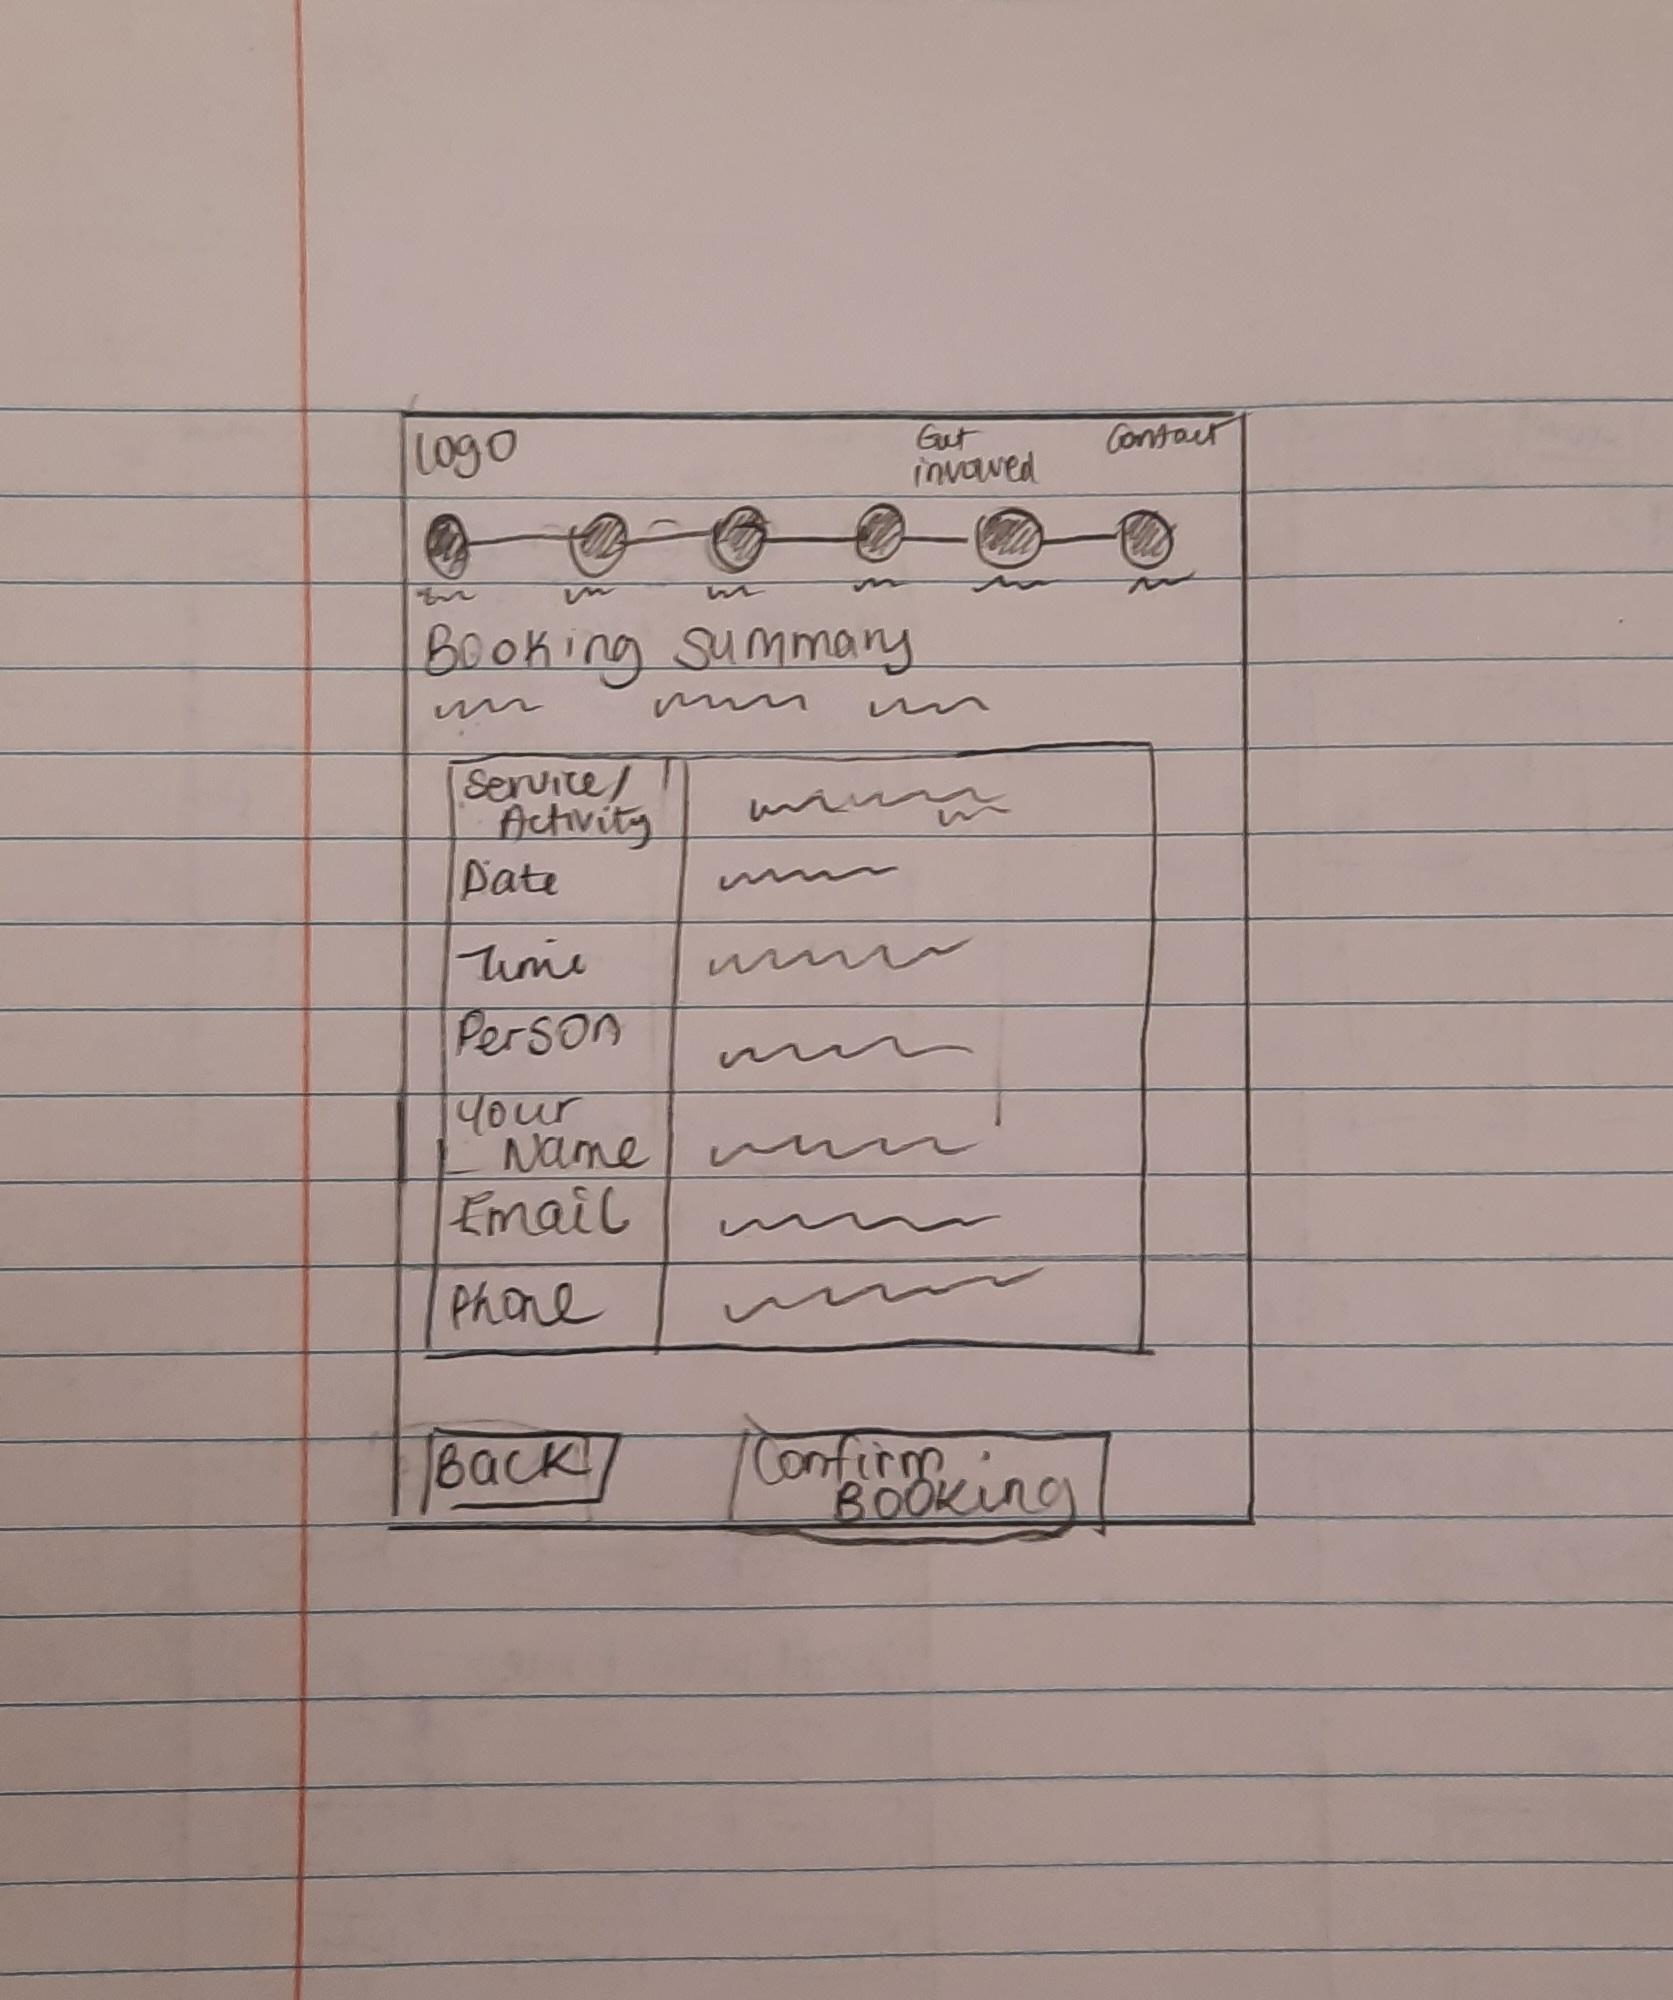 Logo
Get
involved
Contact
Booking Summary
Service/
Activity
Date
Time
Person
Your
Name
Email
Phone
Back
Confirm
Booking